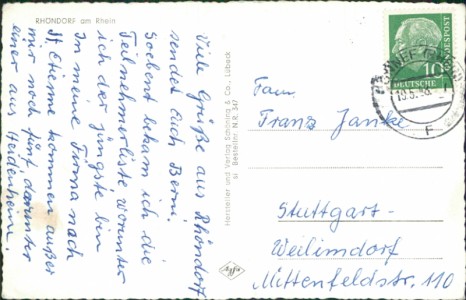 RHÖNDORF am Rhein
Viele Grüße aus Rhöndorf
sendet euch Berni.
Soebent bekam ich die
Teilnehmerliste worunter
ich der jüngste bin
In meine Firma nach
St. Etienne kommen außer
mir noch fünf, darunter
einer aus Heidenheim.
Hersteller und Verlag Schöning & Co., Lübeck
Bestellnr. N.R. 347
DEUTSCHE
BUNDESPOST
10
HONNEF
F
Fam.
Franz Janke
Stuttgart-
Weilimdorf
Mittenfeldstr. 110